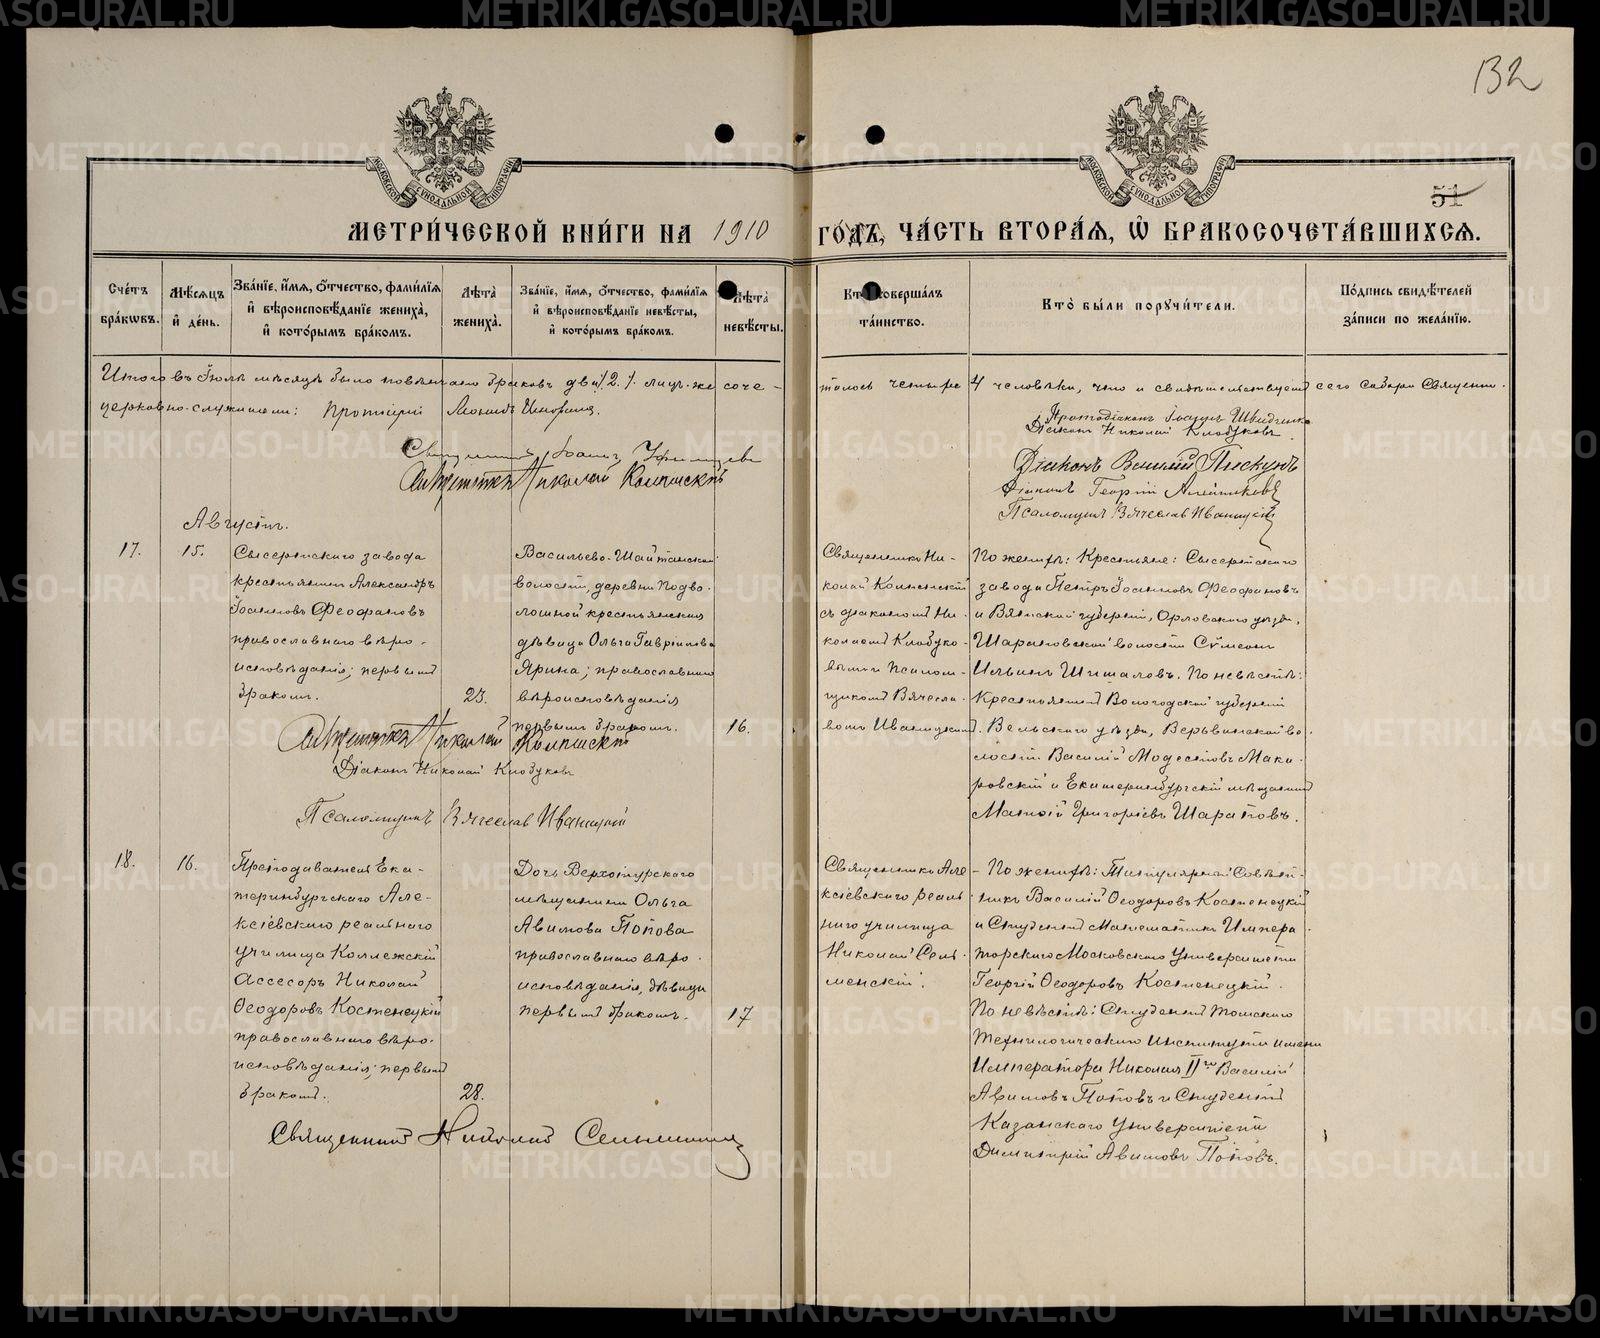 132
51
МЕТРИ́ЧЕСКОЙ КНИ́ГИ НА 1910 ГО́ДЪ, ЧА́СТЬ ВТОРА́Я, Ѡ҆ БРАКОСОЧЕТА́ВШИХСЯ.
Сче́тъ бра́кѡвъ.
Мѣ́сяцъ и҆ де́нь.
Зва́нїе, и҆́мя, ѻ҆́тчество, фами́лїя и҆ вѣроисповѣ́данїе жениха̀, и҆ кото́рымъ бра́комъ.
Лѣ́та жениха̀.
Зва́нїе, и҆́мя, ѻ҆́тчество, фами́лїя и҆ вѣроисповѣ́данїе невѣ́сты, и҆ кото́рымъ бра́комъ.
Лѣ́та невѣ́сты.
Кто̀ соверша́лъ та́инство.
Кто̀ бы́ли порꙋчи́тели.
По́дпись свидѣ́телей за́писи по жела́нїю.
Итого въ Іюлѣ мѣсяцѣ было повѣнчано браковъ два /2/. лицъ-же соче-
талось четыре 4 человѣка, что и свидѣтельствуемъ сего собора Священно-
церковно-служители: Протоіерей Леонидъ
Священникъ Іоаннъ
Николай
Протодіаконъ Іоаннъ
Діаконъ Николай Клобуковъ
Діаконъ Василій Пискунъ
Діаконъ Георгій
Псаломщикъ Вячеславъ Иваницкій
Августъ.
17.
15.
Сысертскаго завода
крестьянинъ Александръ
Іоанновъ Ѳеофановъ
православнаго вѣро-
исповѣданія; первымъ
бракомъ.
23.
Васильево-Шайтанской
волости, деревни Подво-
лошной крестьянская
дѣвица Ольга Гавріилова
Ярина; православнаго
вѣроисповѣданія
первымъ бракомъ.
16.
Священникъ Ни-
колай
съ діакономъ Ни-
колаемъ Клобуко-
вымъ и Псалом-
щикомъ Вячесла-
вомъ Иваницкимъ.
По женихѣ: Крестьяне: Сысертскаго
завода Петръ Іоанновъ Ѳеофановъ
и Вятской губерніи, Орловскаго уѣзда,
волости Сѵмеонъ
Ильинъ Шишаловъ. По невѣстѣ:
Крестьянинъ Вологодской губерніи
Вельскаго уѣзда, Верьвинской во-
лости Василій Модестовъ Мака-
ровскій и Екатеринбургскій мѣщанинъ
Матѳей Григоріевъ Шараповъ.
Николай
Діаконъ Николай Клобуковъ
Псаломщикъ Вячеславъ Иваницкій
18.
16.
Преподаватель Ека-
теринбургскаго Але-
ксіевскаго реальнаго
училища Коллежскій
Ассесоръ Николай
Ѳеодоровъ Костенецкій
православнаго вѣро-
исповѣданія; первымъ
бракомъ.
28.
Дочь Верхотурскаго
мѣщанина Ольга
Авимова Попова
православнаго вѣро-
исповѣданія, дѣвица
первымъ бракомъ.
17
Священникъ Але-
ксіевскаго реаль-
наго училища
Николай Сель-
менскій.
По женихѣ: Титулярный Совѣт-
никъ Василій Ѳеодоровъ Костенецкій
и Студентъ Математикъ Импера-
торскаго Московскаго Университета
Георгій Ѳеодоровъ Костенецкій.
По невѣстѣ: Студентъ Томскаго
Технологическаго Института имени
Императора Николая IIго Василій
Авимовъ Поповъ и Студентъ
Казанскаго Университета
Димитрій Авимовъ Поповъ.
Священникъ Николай Сельменскій
METRIKI.GASO-URAL.RU